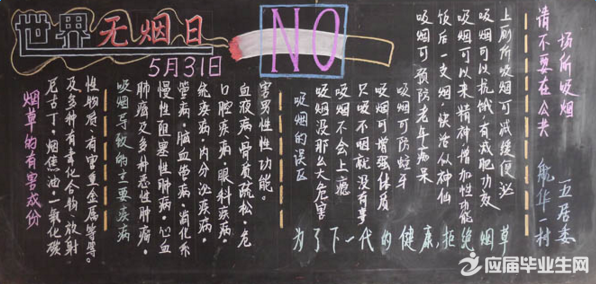 世界无烟日
5月31日
NO
烟草的有害成份
尼古丁、烟焦油、一氧化碳
及多种有害化合物、放射
性物质、有害重金属等等。
吸烟导致的主要疾病
肺癌及多种恶性肿瘤、
慢性阻塞性肺病、心血
管病、脑血管病、消化系
统疾病、内分泌疾病、
口腔疾病、眼科疾病、
血液病、骨质疏松、危
害男性性功能。
吸烟的误区
吸烟没那么大危害
吸烟不会上瘾
只吸不咽就没有事
吸烟可增强体质
吸烟可防蛀牙
吸烟可预防老年痴呆
饭后一支烟,快活似神仙
吸烟可以来精神增加性功能
吸烟可以抗饿,有减肥功效
上厕所吸烟可减缓便泌
为了下一代的健康,拒绝烟草
请不要在公共
场所吸烟
航华一村
五居委
应届毕业生网